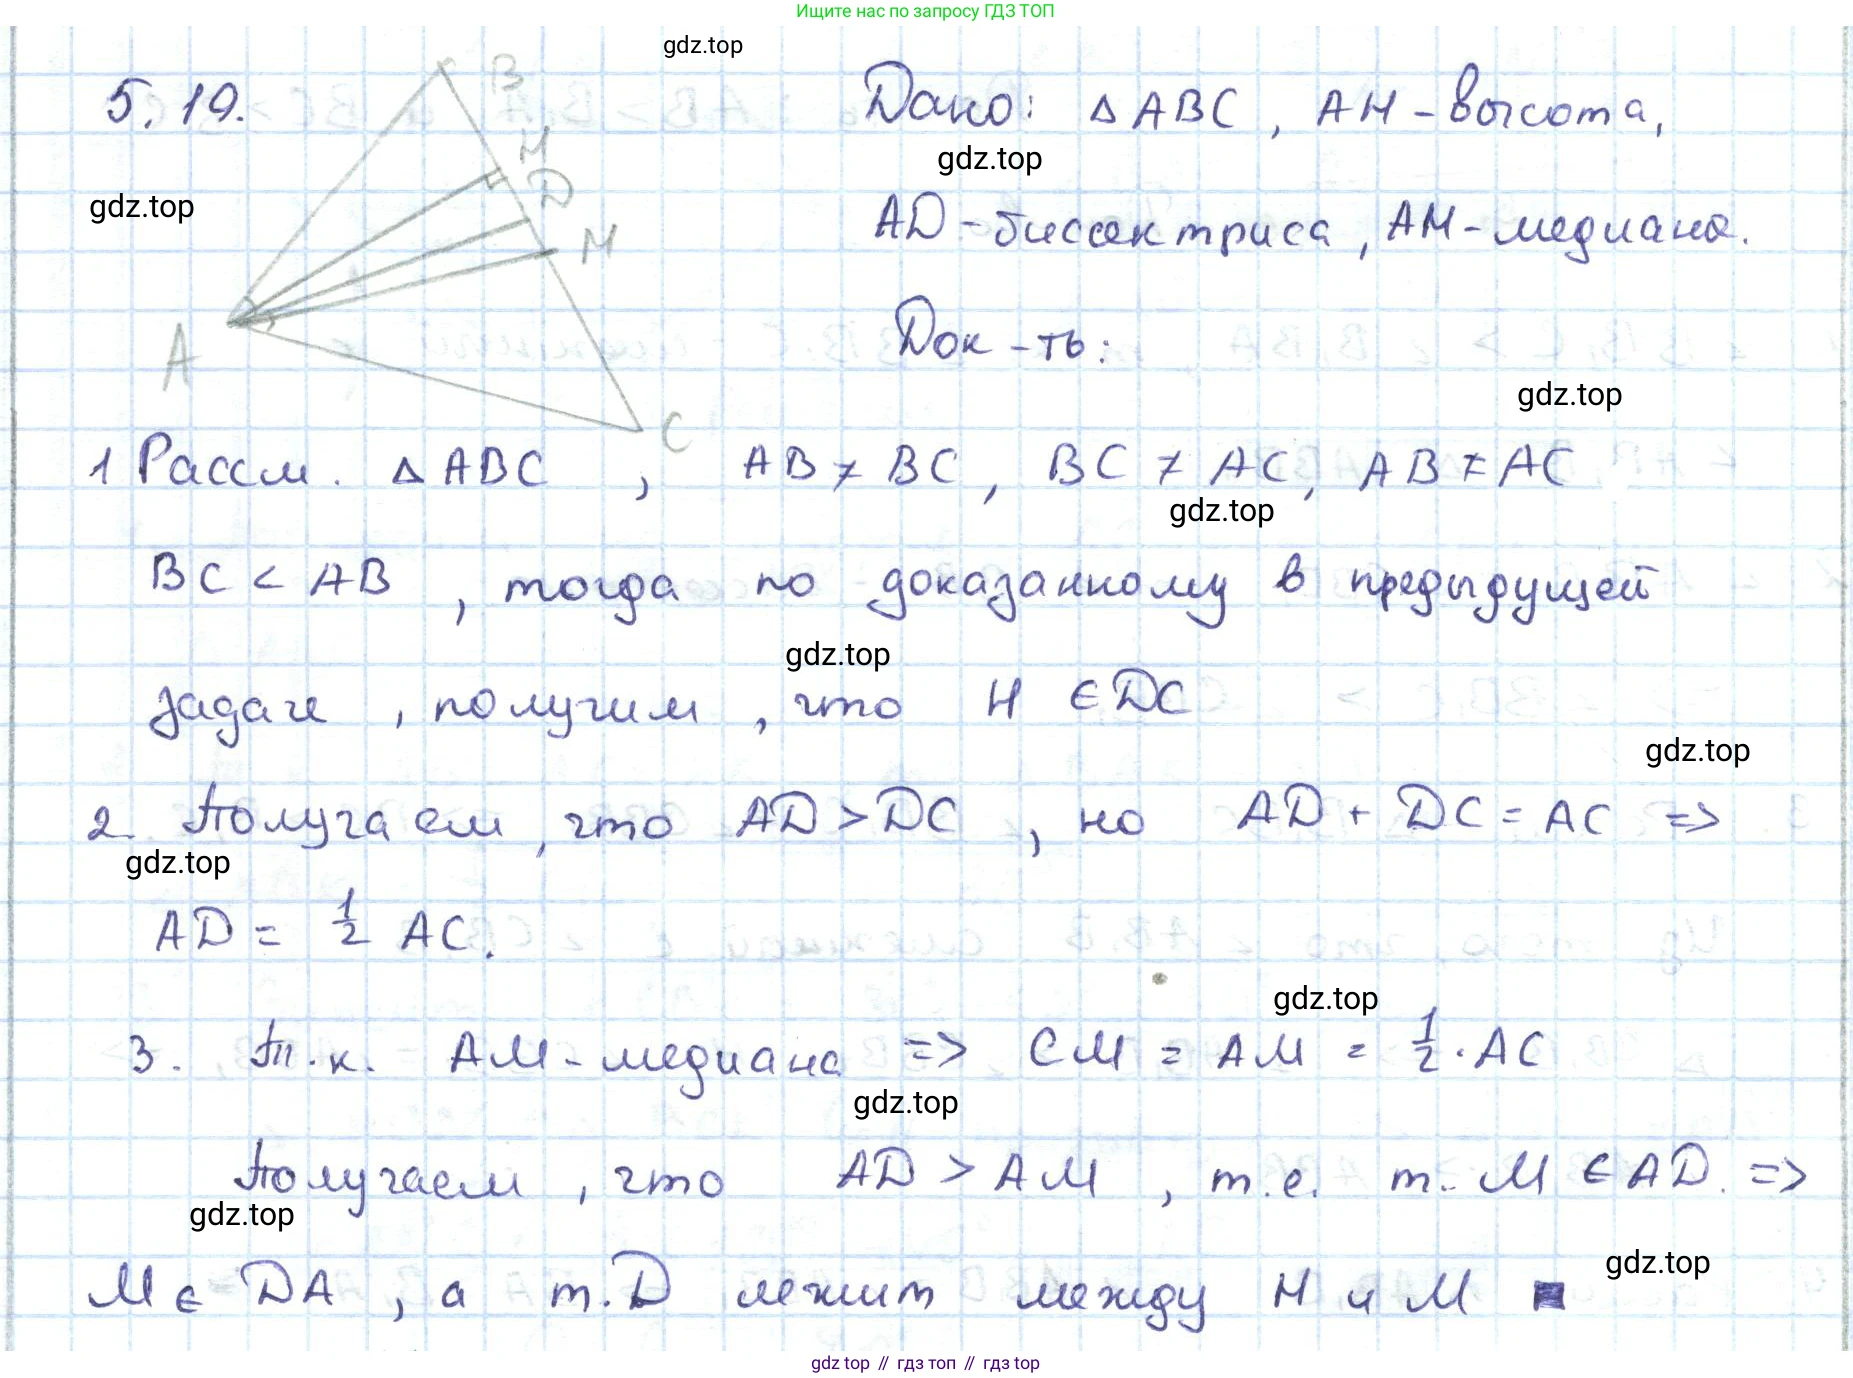 Ищите нас по запросу ГДЗ ТОП
gdz.top
5.19.
B
H
D
M
A
C
Дано: △ABC, AH - высота,
gdz.top
gdz.top
AD - биссектриса, AM - медиана.
Док-ть:
gdz.top
1 Рассм. △ABC, AB ≠ BC, BC ≠ AC, AB ≠ AC
gdz.top
BC < AB, тогда по доказанному в предыдущей
gdz.top
задаче, получим, что H ∈ DC
gdz.top
2. Получаем, что AD > DC, но AD + DC = AC =>
gdz.top
AD = 1/2 AC.
gdz.top
3. Т.к. AM - медиана => CM = AM = 1/2 · AC
gdz.top
Получаем, что AD > AM, т.е. т. M ∈ AD. =>
gdz.top
gdz.top
M ∈ DA, а т. D лежит между H и M
gdz.top // гдз топ // гдз top